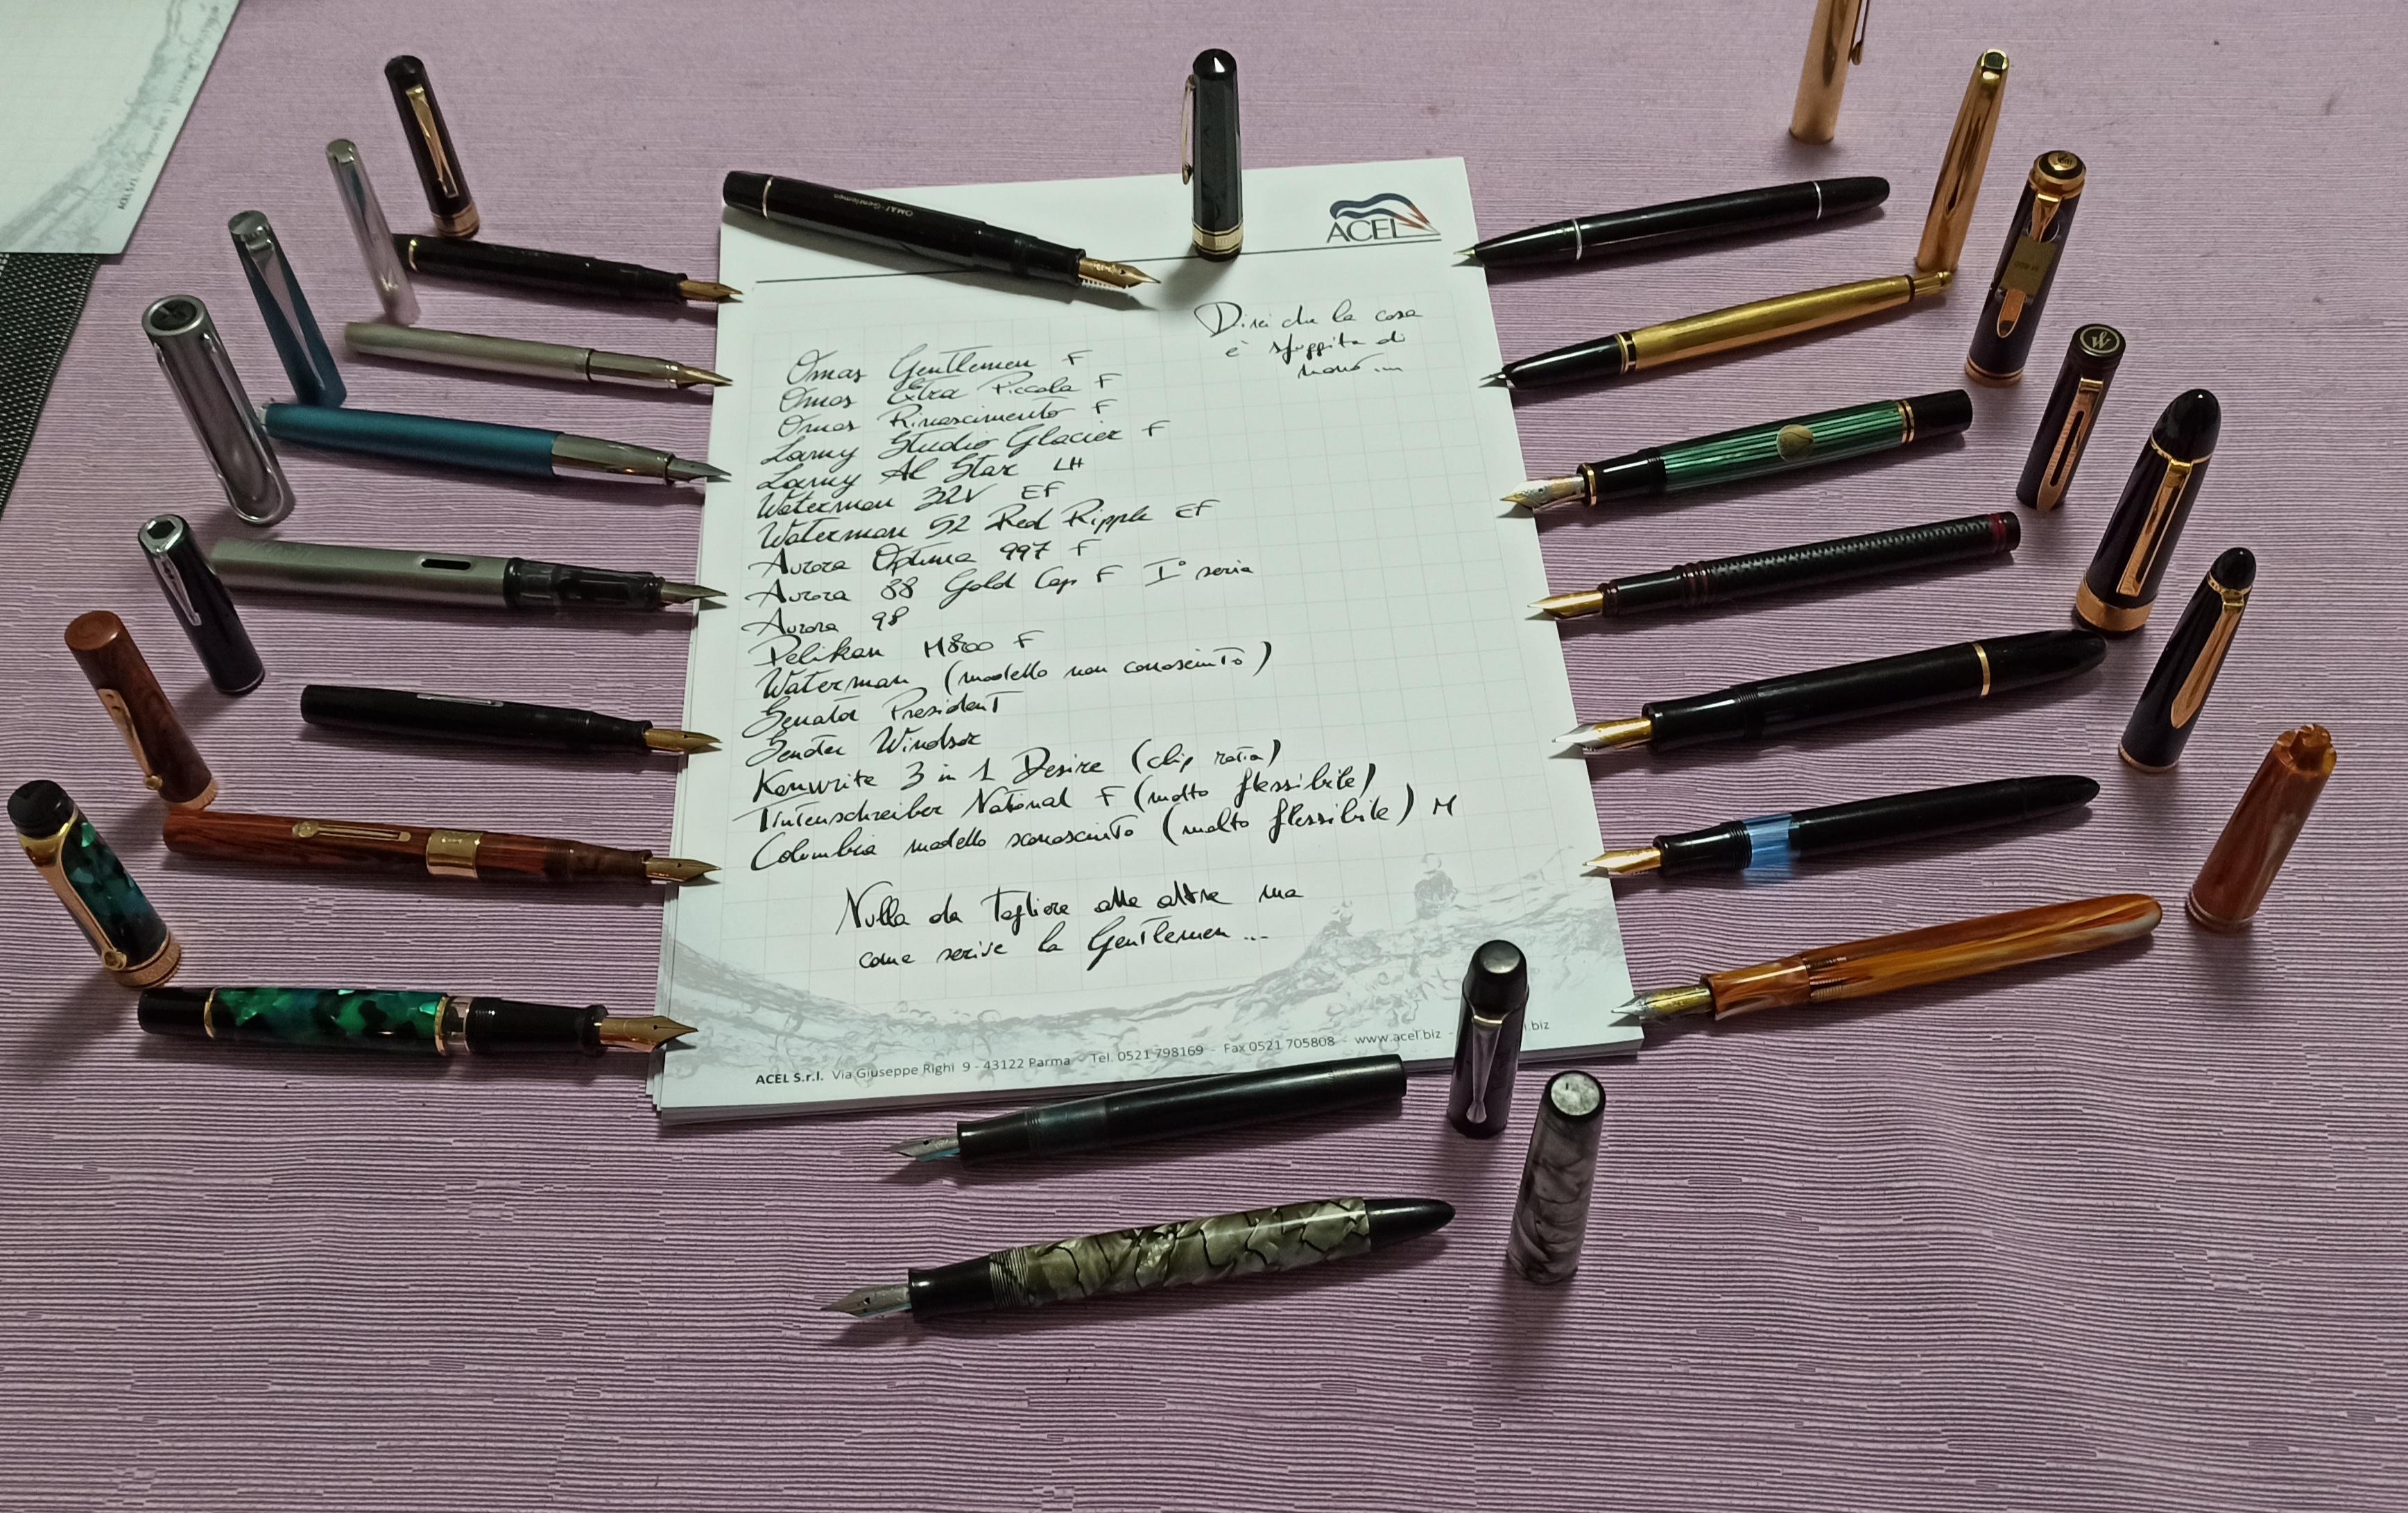 OMAS - Gentlemen
ACEL
Direi che la cosa
è sfuggita di
mano ...
Omas Gentlemen F
Omas Extra Piccola F
Omas Rinascimento F
Lamy Studio Glacier F
Lamy Al Star LH
Waterman 32V EF
Waterman 52 Red Ripple EF
Aurora Optima 997 F
Aurora 88 Gold Cap F I° serie
Aurora 98
Pelikan M800 F
Waterman (modello non conosciuto)
Senator President
Senator Windsor
Kenwrite 3 in 1 Desire (clip rotta)
Tintenschreiber National F (molto flessibile)
Columbia modello sconosciuto (molto flessibile) M
Nulla da togliere alle altre ma
come scrive la Gentlemen ...
ACEL S.r.l. Via Giuseppe Righi 9 - 43122 Parma - Tel. 0521 798169 - Fax 0521 705808 - www.acel.biz - .biz